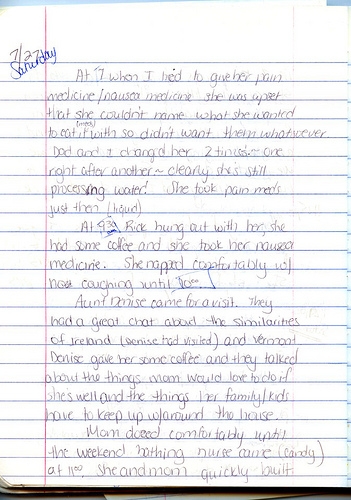 7/27
Saturday
At 7 when I tried to give her pain
medicine/nausea medicine she was upset
that she couldn't name what she wanted
to eat it with so didn't want them whatsoever.
Dad and I changed her 2 times ~ one
right after another ~ clearly she's still
processing water! She took pain meds
just then (liquid)
At 9:30 Rick hung out with her, she
had some coffee and she took her nausea
medicine. She napped comfortably w/
no coughing until
Aunt Denise came for a visit. They
had a great chat about the similarities
of Ireland (Denise had visited) and Vermont
Denise gave her some coffee and they talked
about the things mom would love to do if
she's well and the things her family/kids
have to keep up w/around the house.
Mom dozed comfortably until
the weekend bathing nurse came (Candy)
at 11:00. She and mom quickly built